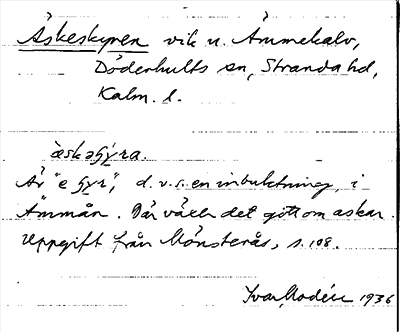 Äskeskyren vik n. Ämmekalv,
Döderhults sn, Stranda hd,
Kalm. l.
Är "e
d.v.s. en inbuktning, i
Ämmån. Där växer det gott om askar.
Uppgift från Mönsterås, s. 108.
Ivar Modéer 1936